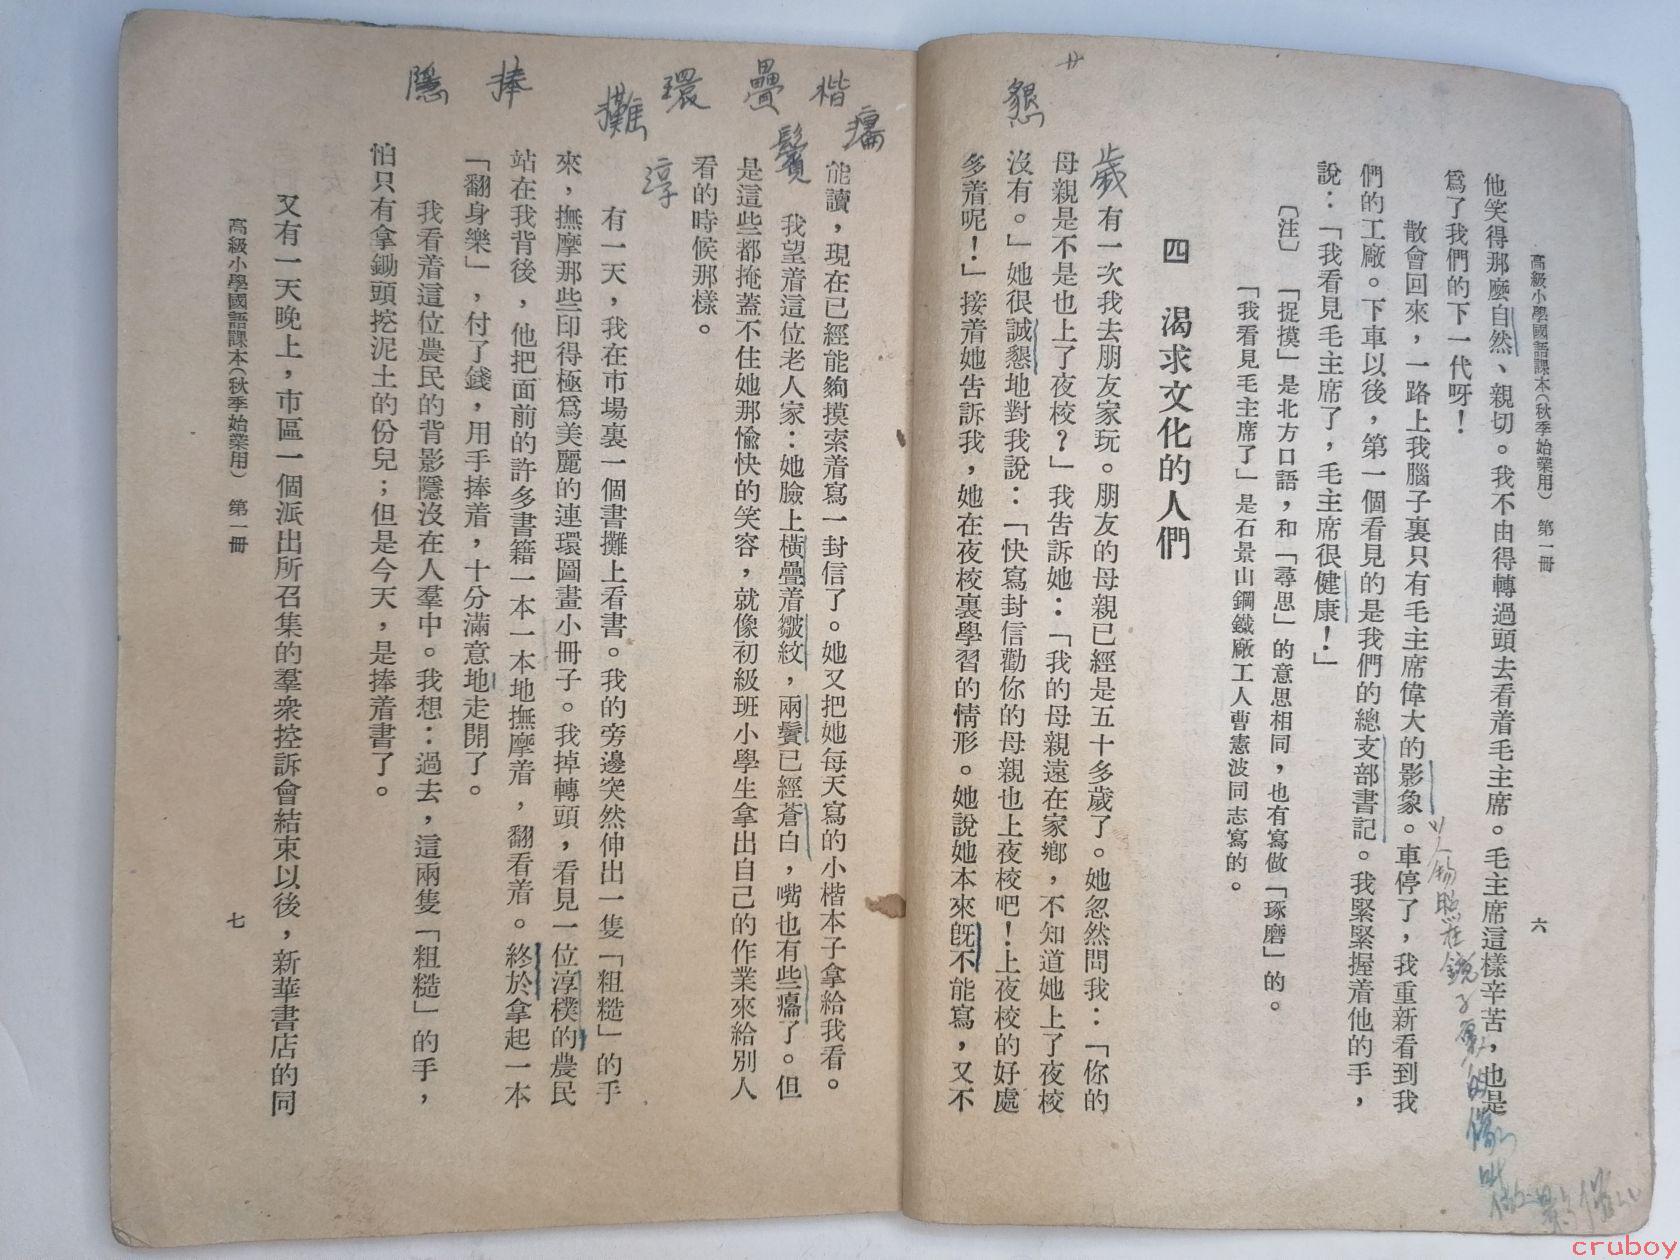 高級小學國語課本（秋季始業用）　第一冊　六
他笑得那麼自然、親切。我不由得轉過頭去看着毛主席。毛主席這樣辛苦，也是
爲了我們的下一代呀！
散會回來，一路上我腦子裏只有毛主席偉大的影象。車停了，我重新看到我
們的工廠。下車以後，第一個看見的是我們的總支部書記。我緊緊握着他的手，
說：「我看見毛主席了，毛主席很健康！」
〔注〕　「捉摸」是北方口語，和「尋思」的意思相同，也有寫做「琢磨」的。
「我看見毛主席了」是石景山鋼鐵廠工人曹憲波同志寫的。
四　渴求文化的人們
有一次我去朋友家玩。朋友的母親已經是五十多歲了。她忽然問我：「你的
母親是不是也上了夜校？」我告訴她：「我的母親遠在家鄉，不知道她上了夜校
沒有。」她很誠懇地對我說：「快寫封信勸你的母親也上夜校吧！上夜校的好處
多着呢！」接着她告訴我，她在夜校裏學習的情形。她說她本來既不能寫，又不
歲
懇
廿
能讀，現在已經能夠摸索着寫一封信了。她又把她每天寫的小楷本子拿給我看。
我望着這位老人家：她臉上橫疊着皺紋，兩鬢已經蒼白，嘴也有些癟了。但
是這些都掩蓋不住她那愉快的笑容，就像初級班小學生拿出自己的作業來給別人
看的時候那樣。
有一天，我在市場裏一個書攤上看書。我的旁邊突然伸出一隻「粗糙」的手
來，撫摩那些印得極爲美麗的連環圖畫小冊子。我掉轉頭，看見一位淳樸的農民
站在我背後，他把面前的許多書籍一本一本地撫摩着，翻看着。終於拿起一本
「翻身樂」，付了錢，用手捧着，十分滿意地走開了。
我看着這位農民的背影隱沒在人羣中。我想：過去，這兩隻「粗糙」的手，
怕只有拿鋤頭挖泥土的份兒；但是今天，是捧着書了。
又有一天晚上，市區一個派出所召集的羣衆控訴會結束以後，新華書店的同
高級小學國語課本（秋季始業用）　第一冊　七
癟
楷
鬢
疊
環
淳
攤
捧
隱
cruboy